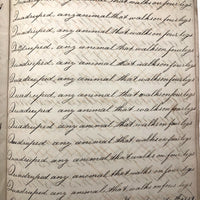 Quadruped, any animal that walks on four legs
Quadruped, any animal that walks on four legs
Quadruped, any animal that walks on four legs
Quadruped, any animal that walks on four legs
Quadruped, any animal that walks on four legs
Quadruped, any animal that walks on four legs
Quadruped, any animal that walks on four legs
Quadruped, any animal that walks on four legs
Quadruped, any animal that walks on four legs
Quadruped, any animal that walks on four legs
Quadruped, any animal that walks on four legs
Quadruped, any animal that walks on four legs